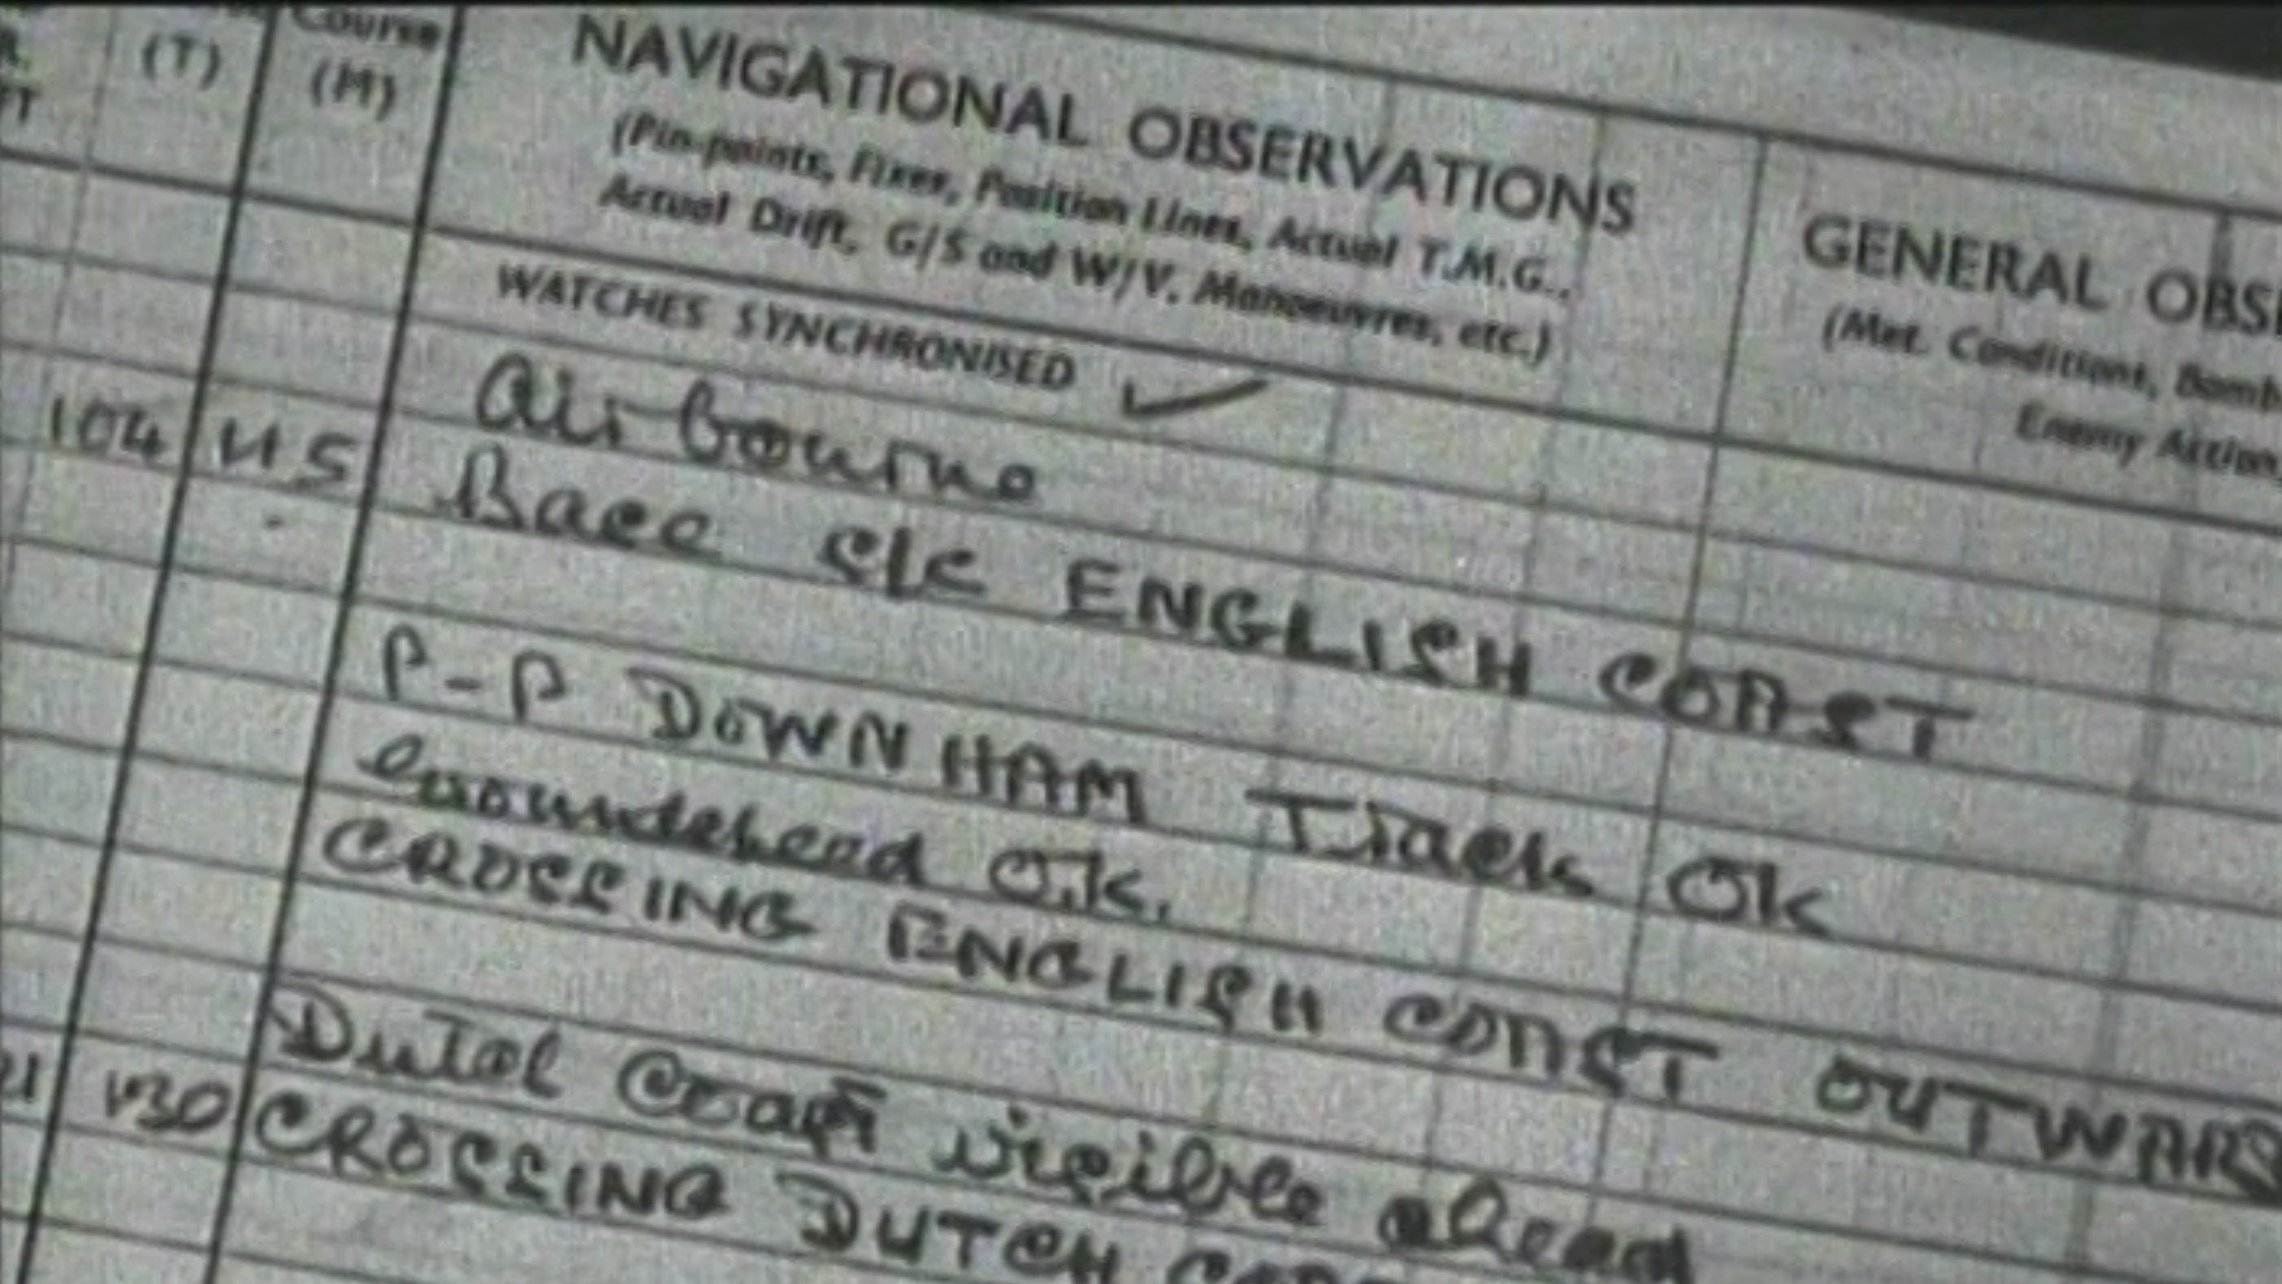 Course
(T) (M)
NAVIGATIONAL OBSERVATIONS
(Pin-points, Fixes, Position Lines, Actual T.M.G.,
Actual Drift, G/S and W/V, Manoeuvres, etc.)
GENERAL OBS
(Met. Conditions, Bomb
Enemy Action,
WATCHES SYNCHRONISED ✓
Airbourne
104 115 Base s/c ENGLISH COAST
P-P DOWNHAM Track OK
Groundspeed O.K.
CROSSING ENGLISH COAST OUTWARDS
Dutch Coast visible ahead
130 CROSSING DUTCH